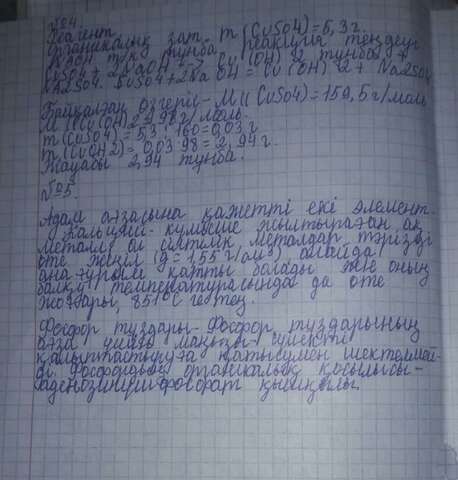 №24.
Реагент
Органикалық зат. m(CuSO4)=5,3г.
NaOH т/қ тұнба, реакция теңдеуі
CuSO4 + 2NaOH -> Cu(OH)2 тұнба +
Na2SO4. CuSO4+2NaOH = Cu(OH)2 + Na2SO4
Байқалған өзгеріс - M(CuSO4)=159,5г/моль
M(Cu(OH)2=98г/моль.
m(CuSO4)=5,3 160=0,03г
m(CuOH2)=0,03 98=2,94г.
Жауабы 2,94 тұнба.
№25.
Адам ағзасына қажетті екі элемент.
Кальций - күмісше жылтыраған ақ
металл, ол сілтілік металдар тәрізді
өте жеңіл (g=1,55г/см³) алайда
анағұрлым қатты болады және оның
балқу температурасында да өте
жоғары, 851°C ге тең.
Фосфор тұздары - Фосфор тұздарының
ағза үшін маңызы сүйекті
қалыптастыруға қатысумен шектелмей-
ді. Фосфордың органикалық қосылысы -
аденозинүшфосфорат қышқылы.